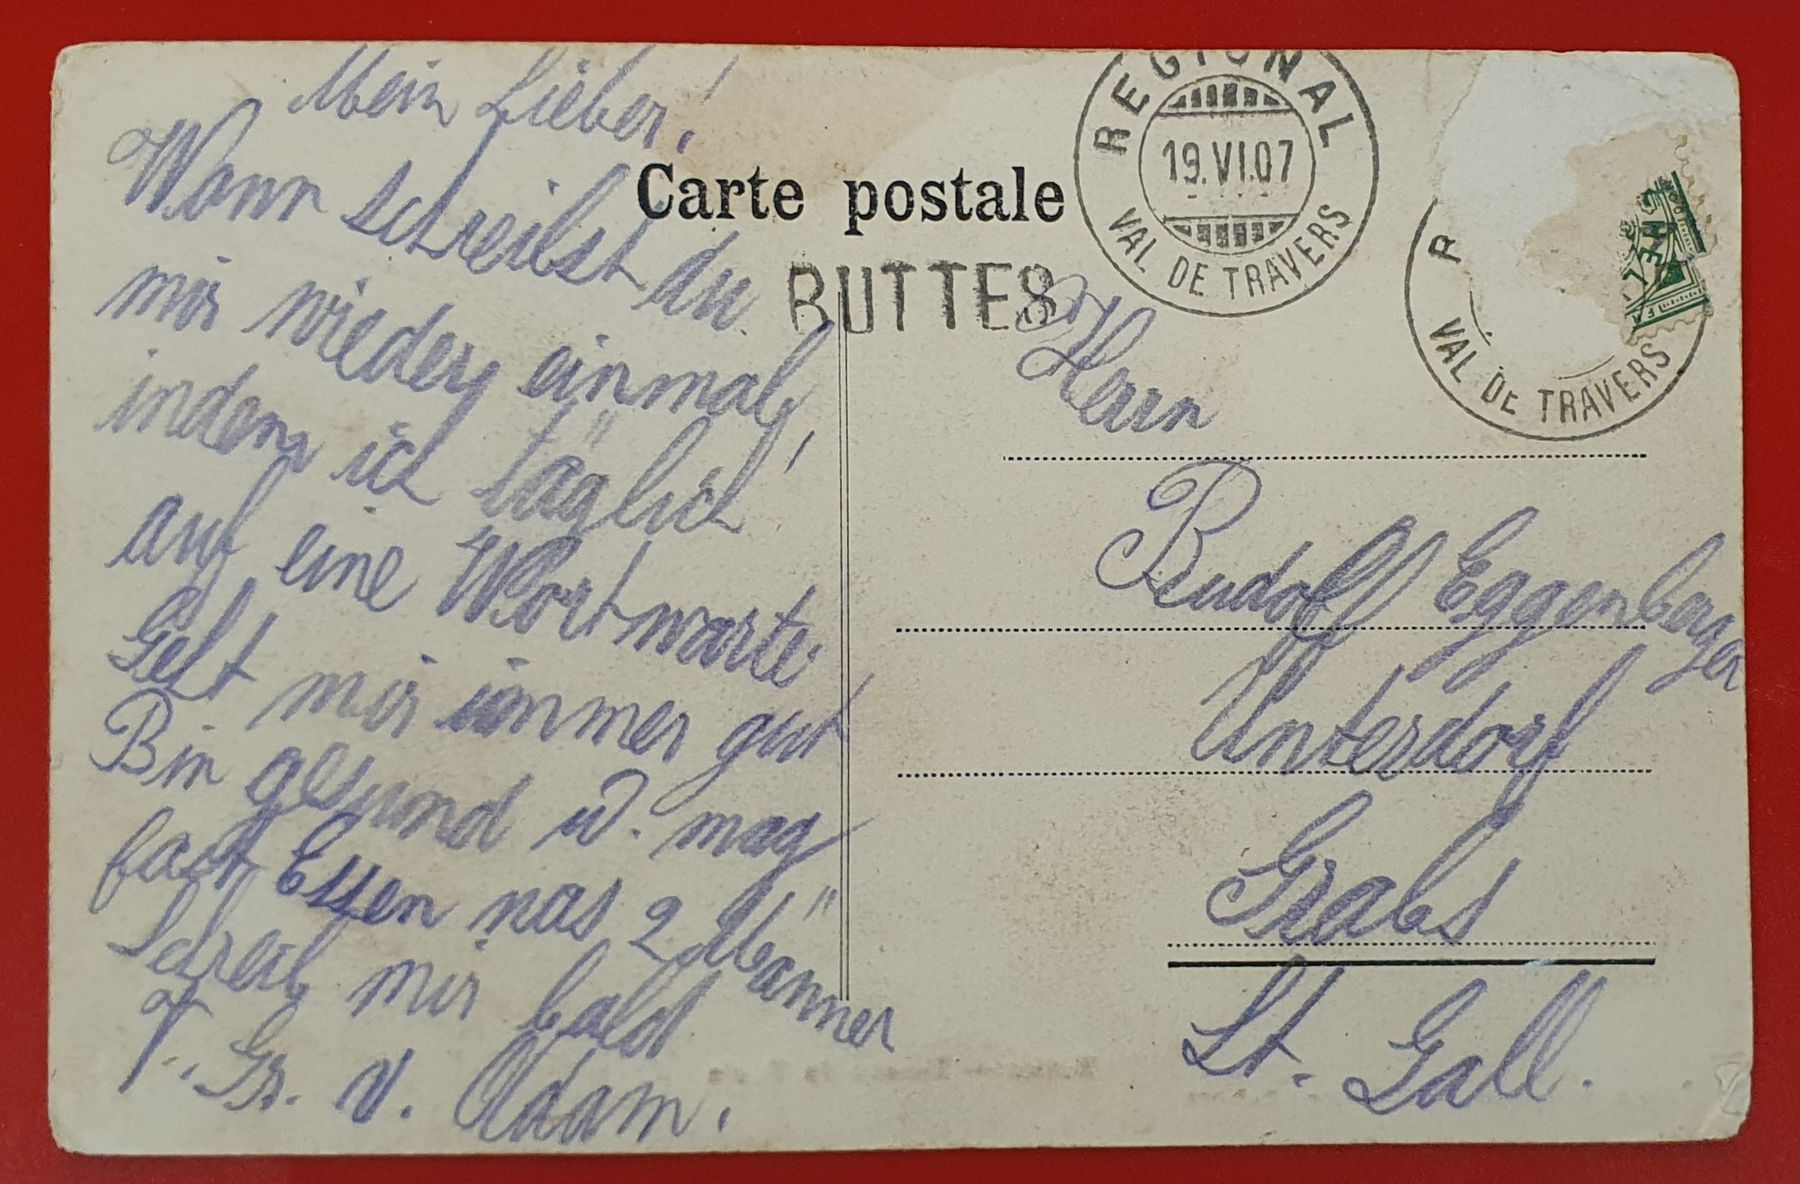 Mein Lieber!
Wann schreibst du
mir wieder einmal,
indem ich täglich
auf eine Wort warte
Geht mir immer gut
Bin gesund u. mag
fast Essen was 2 Männer
Schreib mir bald
Fr. Gr. v. Adam.
Carte postale
REGIONAL
19.VI.07
VAL DE TRAVERS
BUTTES
R
VAL DE TRAVERS
Herrn
Rudolf Eggenberger
Unterdorf
Grabs
St. Gall.